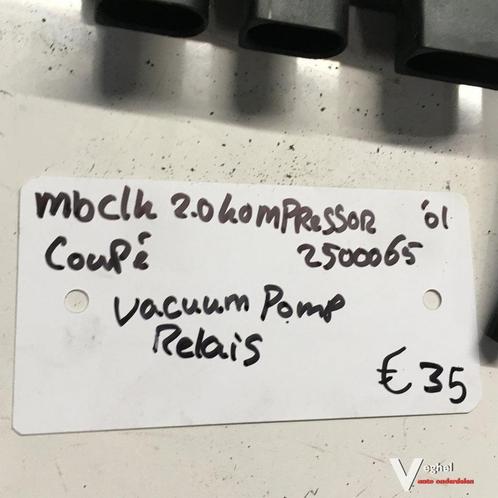 mbclk 2.0 komPRessor '01
Coupé 2500065
Vacuum Pomp
Relais
€ 35
Veghel
auto onderdelen